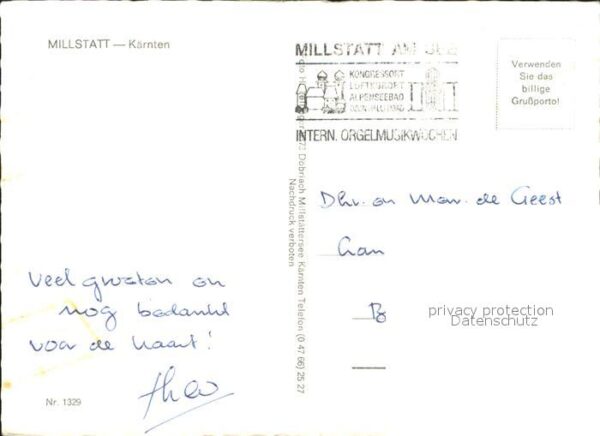 MILLSTATT — Kärnten
MILLSTATT AM SEE
KONGRESSORT
LUFTKURORT
ALPENSEEBAD
INTERN. ORGELMUSIKWOCHEN
Verwenden
Sie das
billige
Grußporto!
Döbriach Millstättersee Kärnten Telefon (0 47 66) 25 27
Nachdruck verboten
Dhr. en Mev. de Geest
privacy protection
Datenschutz
Veel groeten en
nog bedankt
voor de kaart!
Theo
Nr. 1329